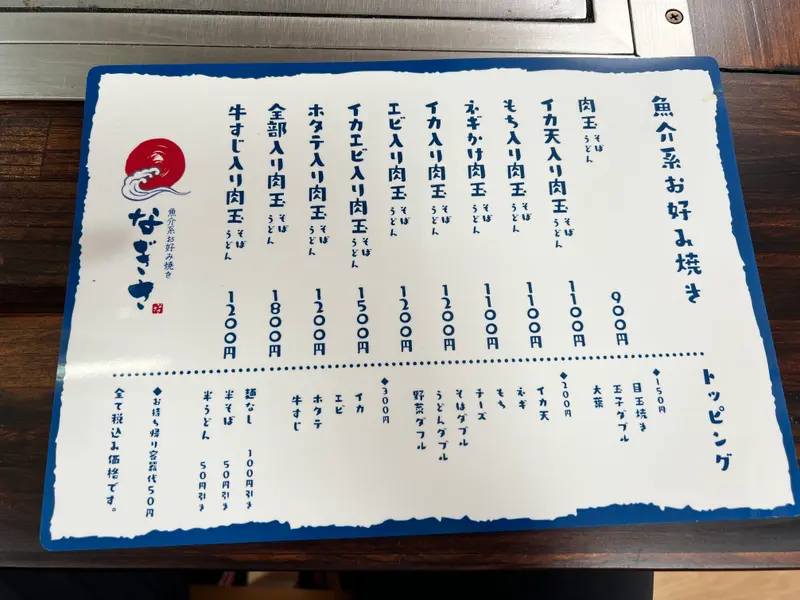 魚介系お好み焼き
肉玉 そば うどん 900円
イカ天入り肉玉 そば うどん 1100円
もち入り肉玉 そば うどん 1100円
ネギかけ肉玉 そば うどん 1100円
イカ入り肉玉 そば うどん 1200円
エビ入り肉玉 そば うどん 1200円
イカエビ入り肉玉 そば うどん 1500円
ホタテ入り肉玉 そば うどん 1200円
全部入り肉玉 そば うどん 1800円
牛すじ入り肉玉 そば うどん 1200円
魚介系お好み焼き
なぎさ
トッピング
◆150円
目玉焼き
玉子ダブル
大葉
◆200円
イカ天
ネギ
もち
チーズ
そばダブル
うどんダブル
野菜ダブル
◆300円
イカ
エビ
ホタテ
牛すじ
麺なし 100円引き
半そば 50円引き
半うどん 50円引き
◆お持ち帰り容器代50円
全て税込み価格です。